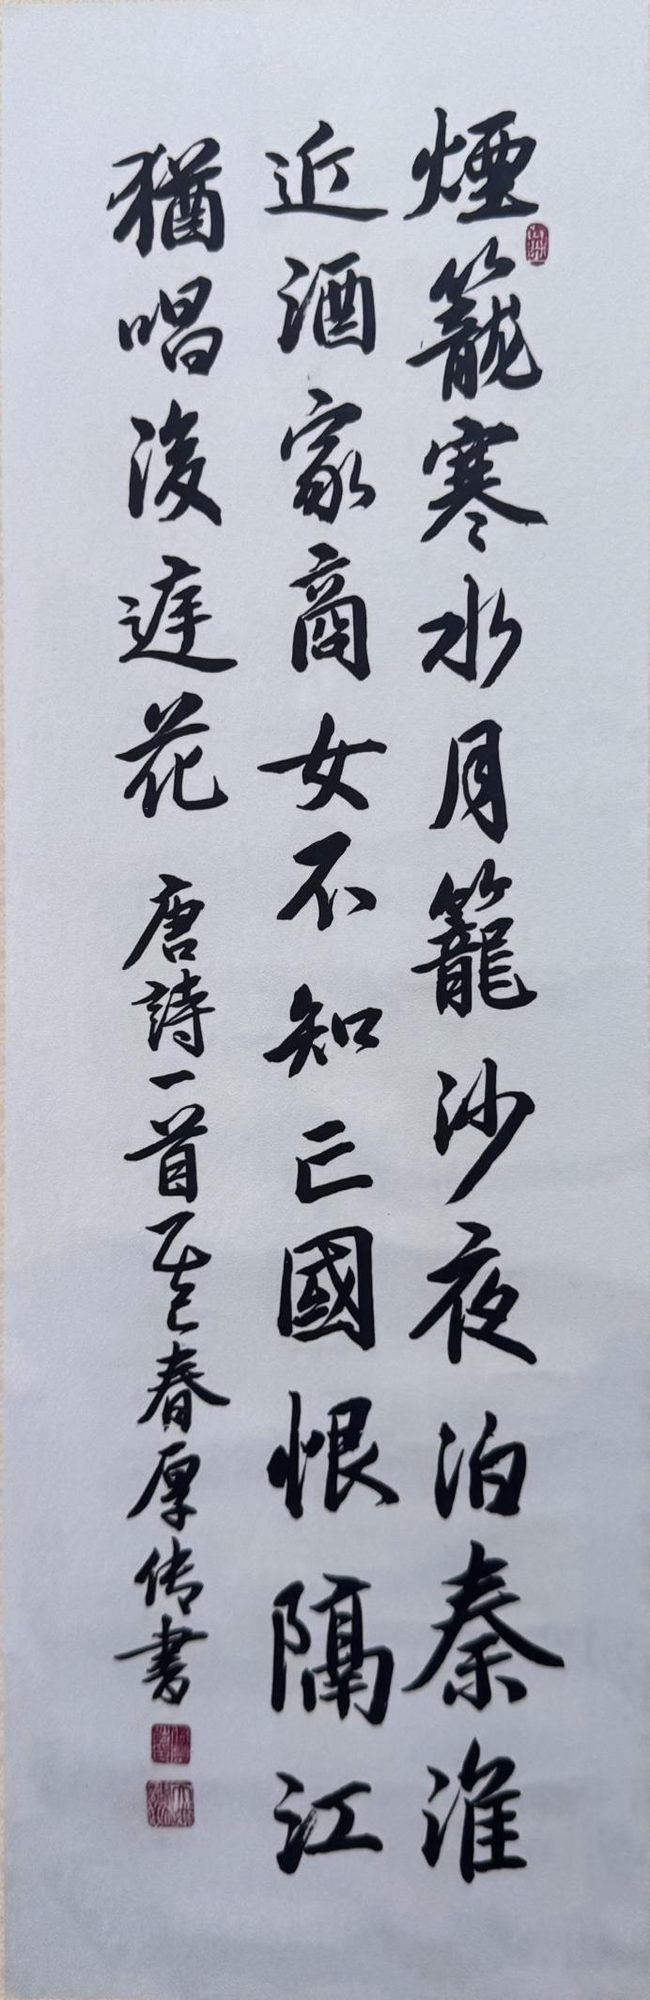 煙籠寒水月籠沙夜泊秦淮
近酒家商女不知亡國恨隔江
猶唱後庭花 唐詩一首乙巳春厚传書